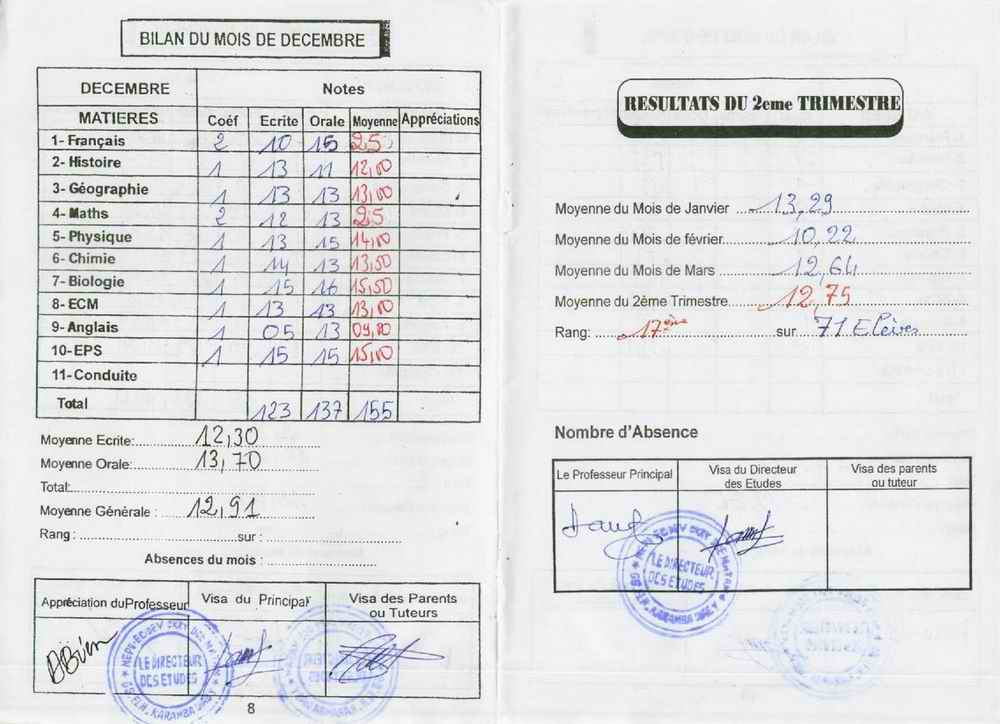 BILAN DU MOIS DE DECEMBRE
DECEMBRE Notes
MATIERES Coéf Ecrite Orale Moyenne Appréciations
1- Français 2 10 15 25
2- Histoire 1 13 11 12,00
3- Géographie 1 13 13 13,00
4- Maths 2 12 13 25
5- Physique 1 13 15 14,00
6- Chimie 1 14 13 13,50
7- Biologie 1 15 16 15,50
8- ECM 1 13 13 13,00
9- Anglais 1 05 13 09,00
10- EPS 1 15 15 15,00
11- Conduite
Total 123 137 155
Moyenne Ecrite: 12,30
Moyenne Orale: 13,70
Total:
Moyenne Générale : 12,91
Rang : sur :
Absences du mois :
Appréciation du Professeur Visa du Principal Visa des Parents ou Tuteurs
LE DIRECTEUR
DES ETUDES
8
RESULTATS DU 2eme TRIMESTRE
Moyenne du Mois de Janvier 13,29
Moyenne du Mois de février 10,22
Moyenne du Mois de Mars 12,64
Moyenne du 2ème Trimestre 12,75
Rang: 17ème sur 71 Elèves
Nombre d'Absence
Le Professeur Principal Visa du Directeur des Etudes Visa des parents ou tuteur
LE DIRECTEUR
DES ETUDES